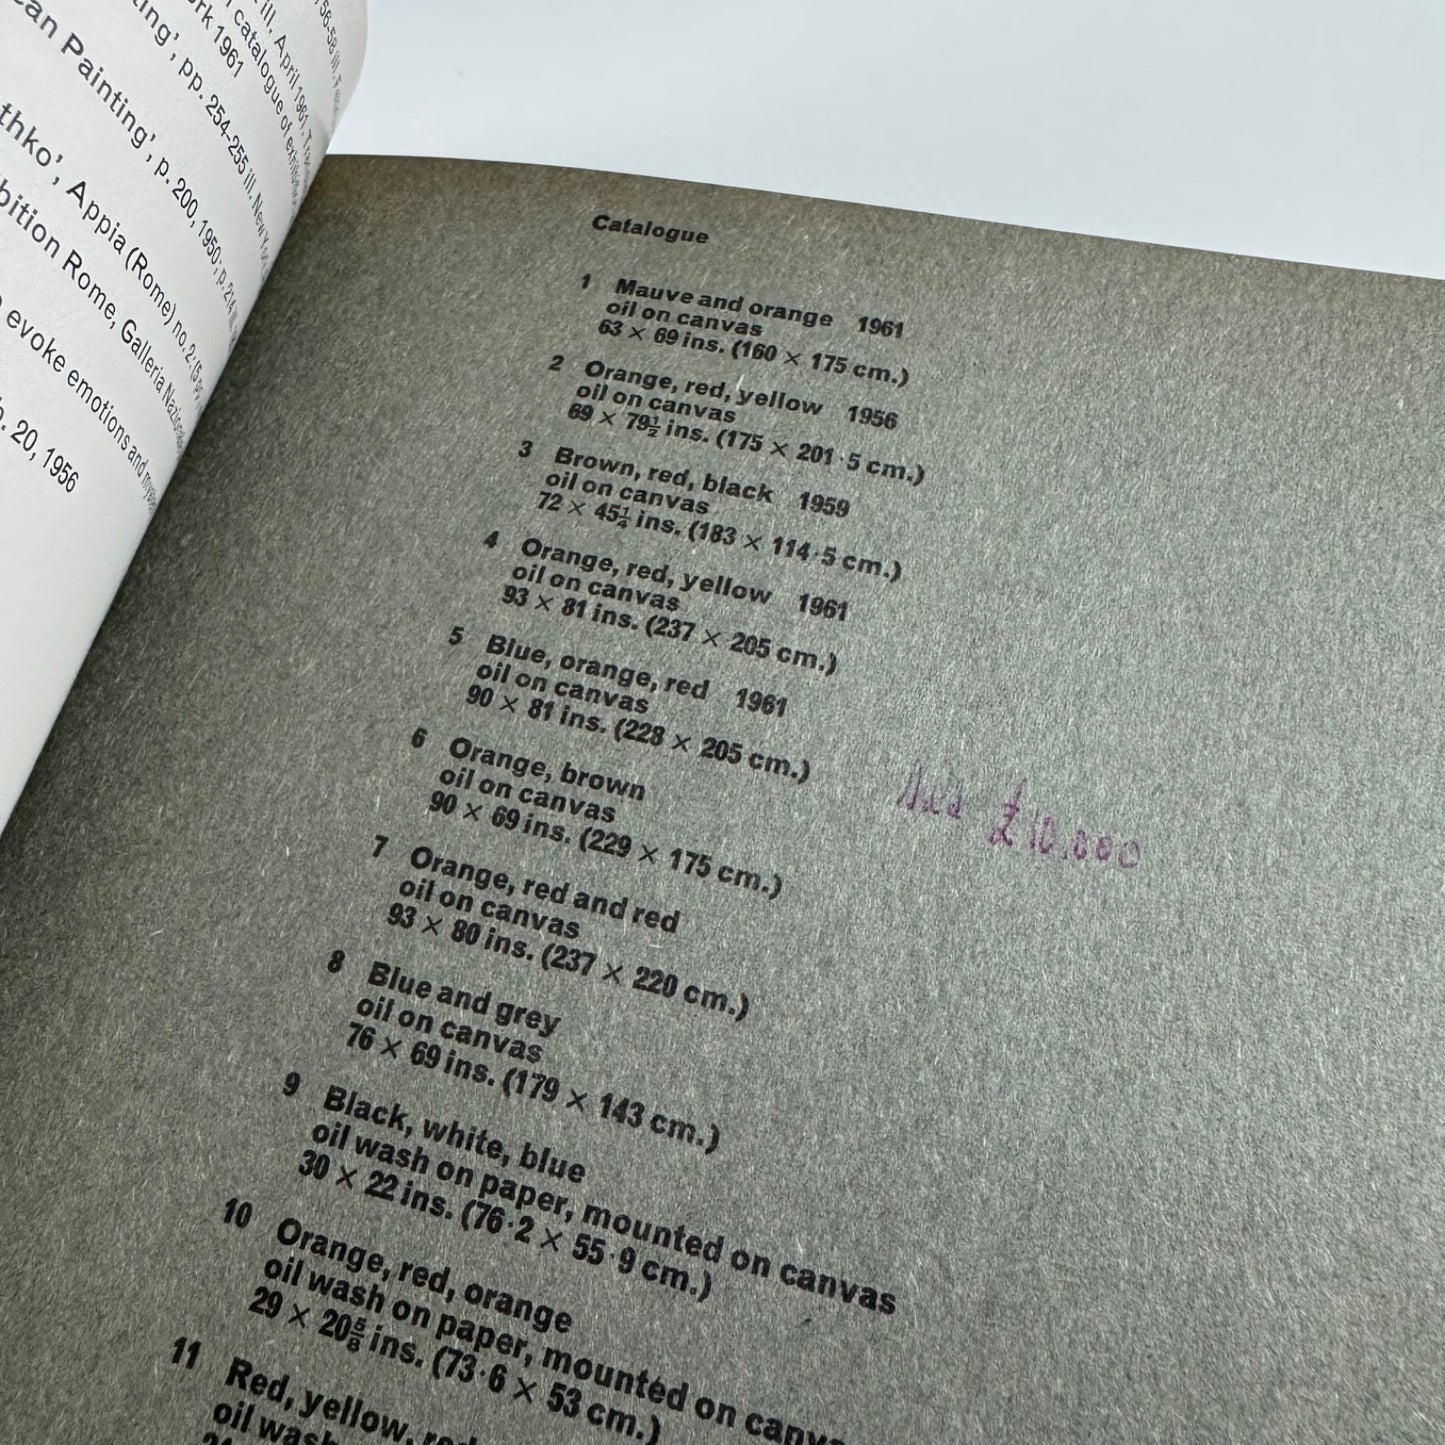 56-58 ill.
ill. April 1961.
ting', pp. 254-255 ill. New York
rk 1961
catalogue of exhibition
ean Painting', p. 200, 1950; p. 214
thko', Appia (Rome) no. 2
bition Rome, Galleria
evoke emotions and
20, 1956
Catalogue
1 Mauve and orange 1961
oil on canvas
63 × 69 ins. (160 × 175 cm.)
2 Orange, red, yellow 1956
oil on canvas
69 × 79½ ins. (175 × 201·5 cm.)
3 Brown, red, black 1959
oil on canvas
72 × 45¼ ins. (183 × 114·5 cm.)
4 Orange, red, yellow 1961
oil on canvas
93 × 81 ins. (237 × 205 cm.)
5 Blue, orange, red 1961
oil on canvas
90 × 81 ins. (228 × 205 cm.)
6 Orange, brown
oil on canvas
90 × 69 ins. (229 × 175 cm.)
£10.000
7 Orange, red and red
oil on canvas
93 × 80 ins. (237 × 220 cm.)
8 Blue and grey
oil on canvas
76 × 69 ins. (179 × 143 cm.)
9 Black, white, blue
oil wash on paper, mounted on canvas
30 × 22 ins. (76·2 × 55·9 cm.)
10 Orange, red, orange
oil wash on paper, mounted on canva
29 × 20⅝ ins. (73·6 × 53 cm.)
11 Red, yellow, red
oil wash